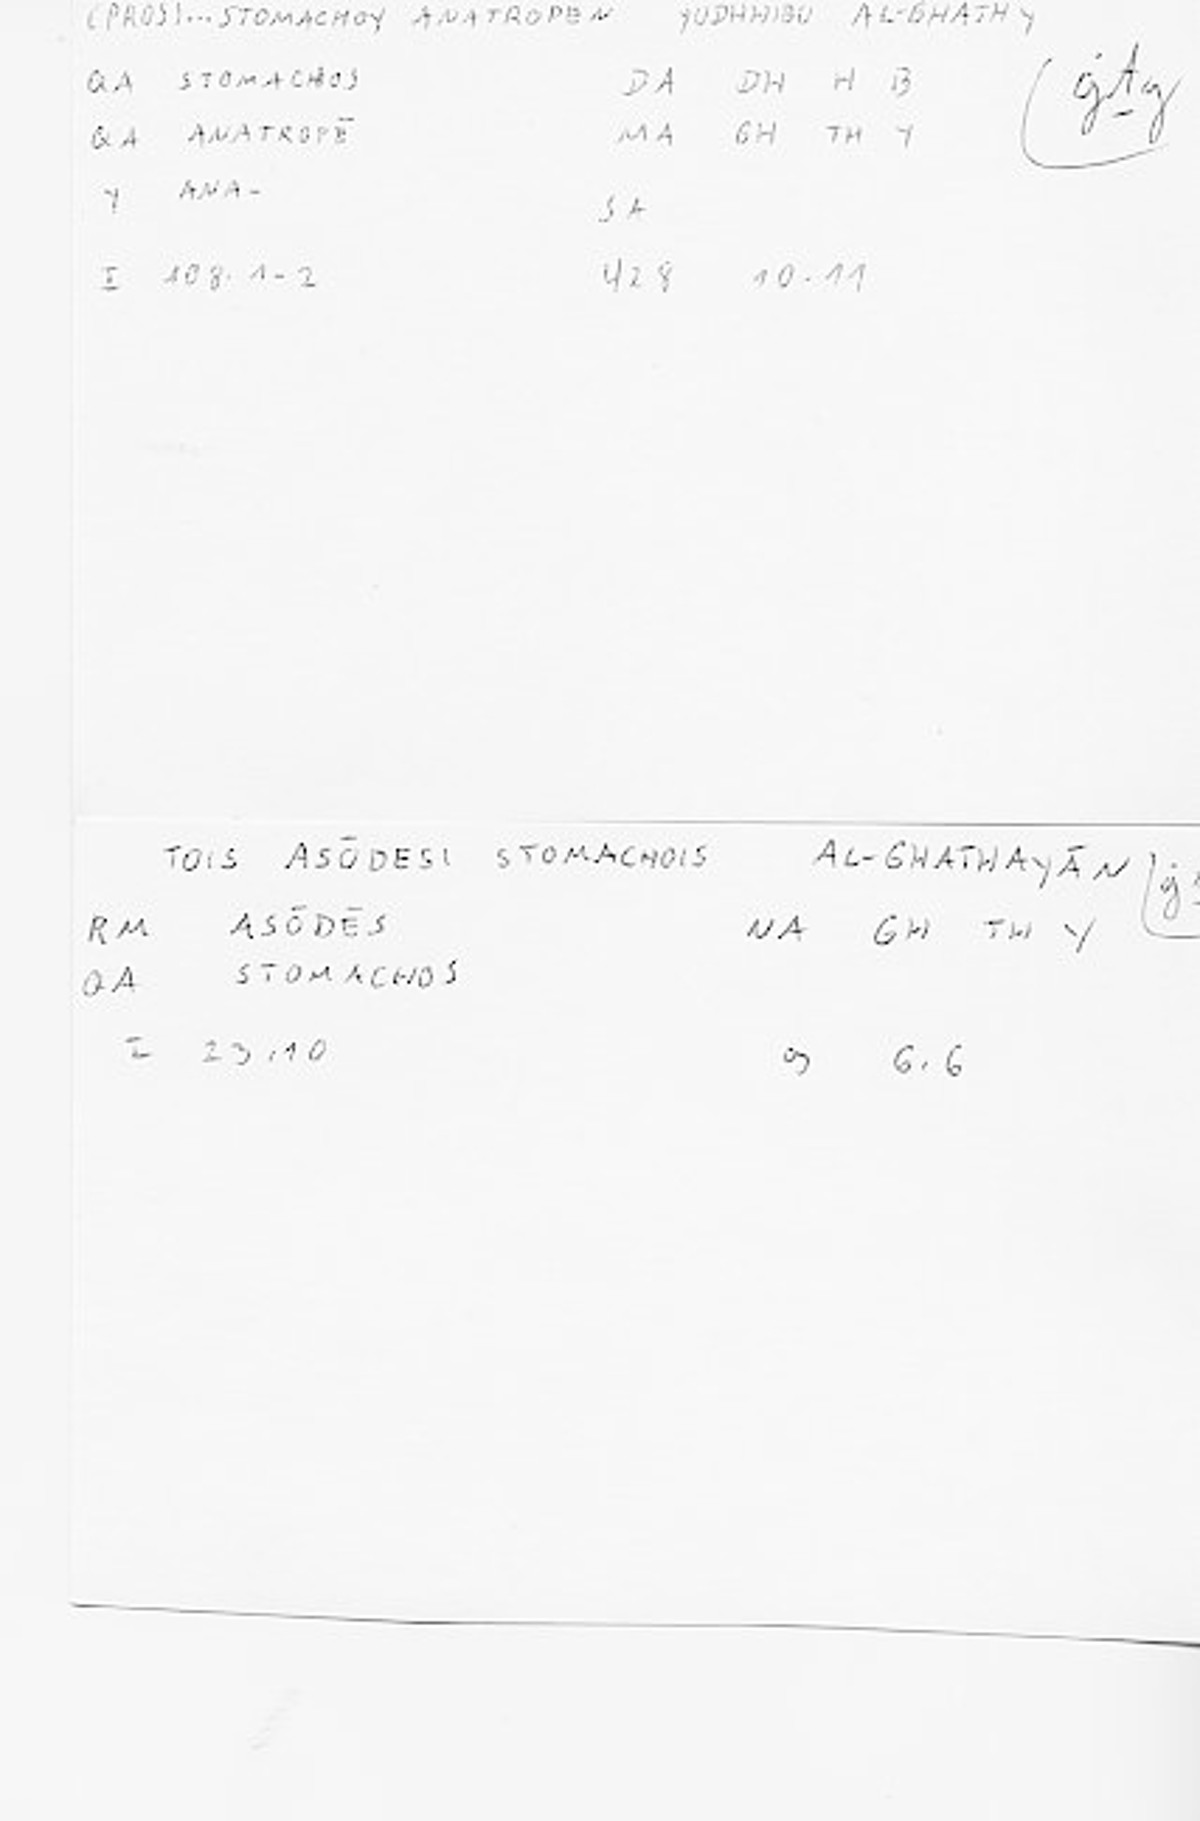 (PROS)...STOMACHOY ANATROPEN YUDHHIBU AL-GHATHY
QA STOMACHOS DA DH H B ġṯy
QA ANATROPĒ MA GH TH Y
Y ANA- SA
I 108.1-2 428 10.11
TOIS ASŌDESI STOMACHOIS AL-GHATHAYĀN
RM ASŌDĒS NA GH TH Y
QA STOMACHOS
I 23.10 9 6.6